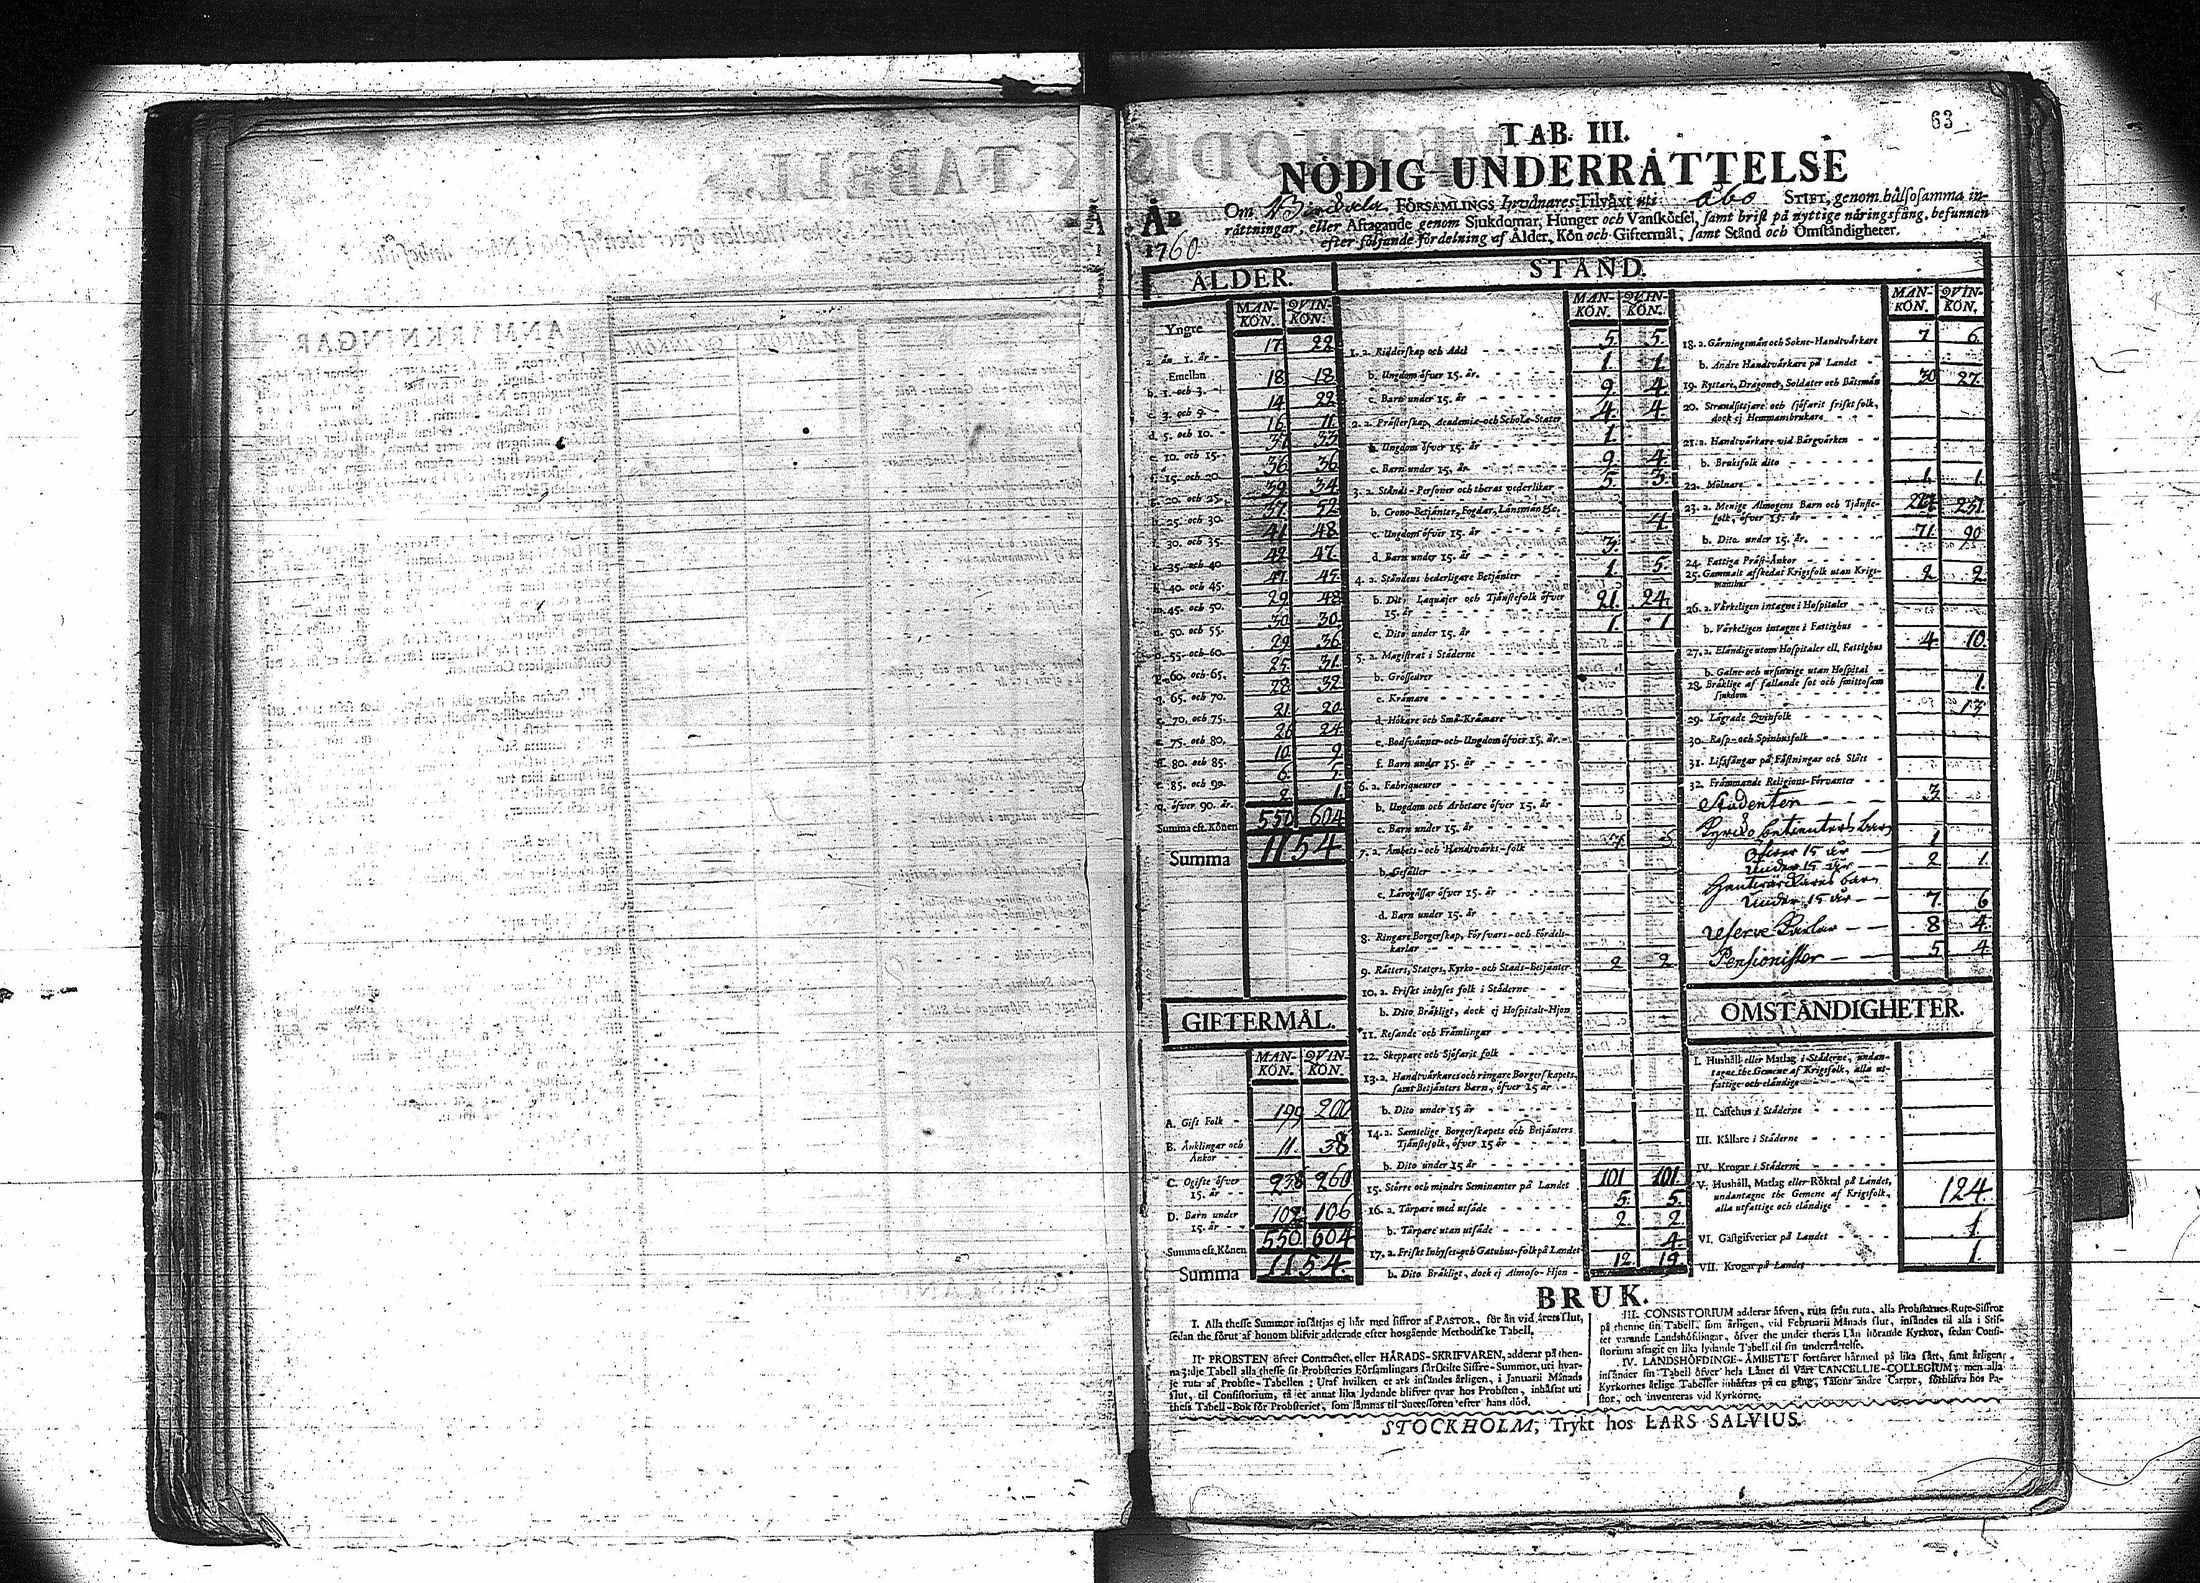 63
TAB. III.
NÖDIG UNDERRÅTTELSE
ÅR 1760.
Om FÖRSAMLINGS Invånares Tilväxt uti Åbo STIFT, genom hälsosamma in-
råttningar, eller Aftagande genom Sjukdomar, Hunger och Vanskötsel, samt brist på nyttige näringsfång, befunnen
efter följande fördelning af Ålder, Kön och Giftermål, samt Stånd och Omståndigheter.
ÅLDER.
MAN-KÖN. QVIN-KÖN.
Yngre
a. än 1. år - 17 22
Emellan
b. 1. och 3. 18 18
c. 3. och 5. 14 22
d. 5. och 10. 16 11
e. 10. och 15. 37 33
f. 15. och 20. 36 36
g. 20. och 25. 39 34
h. 25. och 30. 37 52
i. 30. och 35. 41 48
k. 35. och 40. 42 47
l. 40. och 45. 47 45
m. 45. och 50. 29 48
n. 50. och 55. 30 30
o. 55. och 60. 29 36
p. 60. och 65. 25 31
q. 65. och 70. 28 32
r. 70. och 75. 21 20
s. 75. och 80. 26 24
80. och 85. 10 9
t. 85. och 90. 6 5
öfver 90. år. 2 1
Summa eft. Könen 550 604
Summa 1154
GIFTERMÅL.
MAN-KÖN. QVIN-KÖN.
A. Gift Folk - 199 200
B. Änklingar och Änkor - 11 38
C. Ogifte öfver 15. år - - 238 260
D. Barn under 15. år - - 102 106
Summa eft. Könen 550 604
Summa 1154
STÅND.
MAN-KÖN. QVIN-KÖN.
1. a. Ridderskap och Adel 5 5
b. Ungdom öfver 15. år. 1 1
c. Barn under 15. år 9 4
2. a. Prästerskap, Academiæ-och Scholæ-Stater 4 4
b. Ungdom öfver 15. år 1
c. Barn under 15. år 9 4
3. a. Stånds-Personer och theras vederlikar 5 3
b. Crono-Betjänter, Fogdar, Länsmän &c.
c. Ungdom öfver 15. år 4
d. Barn under 15. år 3
4. a. Ståndens hederligare Betjänter 1 5
b. Dit, Laquajer och Tjänstefolk öfver 15. år 21 24
c. Dito under 15. år 1 1
5. a. Magistrat i Städerne
b. Grosseurer
c. Krämare
d. Hökare och Små-Krämare
e. Bodsvänner och Ungdom öfver 15. år.
f. Barn under 15. år
6. a. Fabriqueurer
b. Ungdom och Arbetare öfver 15. år
c. Barn under 15. år
7. a. Ämbets- och Handtvärks-folk 7 5
b. Gesäller
c. Lärogåssar öfver 15. år
d. Barn under 15. år
8. Ringare Borgerskap, Försvars- och Fördels-karlar
9. Råtters, Staters, Kyrko- och Stads-Betjänter 2 2
10. a. Friskt inhyses folk i Städerne
b. Dito Bräkligt, dock ej Hospitals-Hjon
11. Resande och Främlingar
12. Skeppare och Sjöfarit folk
13. a. Handtvärkares och ringare Borgerskapets, samt Betjänters Barn, öfver 15 år
b. Dito under 15 år
14. a. Samtelige Borgerskapets och Betjänters Tjänstefolk, öfver 15 år
b. Dito under 15 år
15. Större och mindre Seminanter på Landet 101 101
16. a. Tårpare med utsäde 5 5
b. Tårpare utan utsäde 2 2
17. a. Friskt Inhyses-och Gatuhus-folk på Landet 4
b. Dito Bräkligt, dock ej Almoso-Hjon 12 19
MAN-KÖN. QVIN-KÖN.
18. a. Gärningsmän och Sokne-Handtvärkare 7 6
b. Andre Handtvärkare på Landet
19. Ryttare, Dragoner, Soldater och Båtsmän 30 27
20. Strandsittjare och sjöfarit friskt folk, dock ej Hemmansbrukare
21. a. Handtvärkare vid Bärgvärken
b. Bruksfolk dito
22. Mölnare 1 1
23. a. Menige Almogens Barn och Tjänstefolk, öfver 15. år 251
b. Dito under 15. år. 71 90
24. Fattiga Präst-Änkor
25. Gammalt afskedat Krigsfolk utan Krigsmanshus 2 2
26. a. Värkeligen intagne i Hospitaler
b. Värkeligen intagne i Fattighus
27. a. Eländige utom Hospitaler ell. Fattighus 4 10
b. Galne och ursinnige utan Hospital
28. Bräklige af fallande sot och smittosam sjukdom 1
29. Lägrade Qvinfolk 13
30. Rasp- och Spinhusfolk
31. Lifsfångar på Fästningar och Slått
32. Främmande Religions-Förvanter
Studenter 3
Kyrko betienters barn
öfver 15 år 1
under 15 år 2 1
Hantvärckares barn
under 15 år 7 6
reserve Karlar 8 4
Pensionister 5 4
OMSTÄNDIGHETER.
I. Hushåll eller Matlag i Städerne, undantagne the Gemene af Krigsfolk, alla utfattige och eländige
II. Caffehus i Städerne
III. Källare i Städerne
IV. Krogar i Städerne
V. Hushåll, Matlag eller Röktal på Landet, undantagne the Gemene af Krigsfolk, alla utfattige och eländige 124
VI. Gästgifverier på Landet 1
VII. Krogar på Landet 1
BRUK.
I. Alla thesse Summor insättjas ej här med siffror af PASTOR, för än vid årets slut,
sedan the förut af honom blifvit adderade efter hosgående Methodiske Tabell.
II. PROBSTEN öfver Contractet, eller HÄRADS-SKRIFVAREN, adderar på then-
na 3:dje Tabell alla thesse sit Probsteries Församlingars särskilte Siffre-Summor, uti hvar-
je ruta af Probste-Tabellen: Utaf hvilken et ark insändes årligen, i Januarii Månads
slut, til Consistorium, tå et annat lika lydande blifver qvar hos Probsten, inhäftat uti
thess Tabell-Bok för Probsteriet, som lämnas til Successoren efter hans död.
III. CONSISTORIUM adderar äfven, ruta från ruta, alla Probstarnes Rute-Siffror
på thenne sin Tabell, som årligen, vid Februarii Månads slut, insändes til alla i Stif-
tet varande Landshöfdingar, öfver the under theras Län hörande Kyrkor, sedan Consi-
storium aftagit en lika lydande Tabell til sin underrättelse.
IV. LANDSHÖFDINGE-ÄMBETET fortfarer härmed på lika sätt, samt årligen
insänder sin Tabell öfver hela Länet til Vårt CANCELLIE-COLLEGIUM; men alla
Kyrkornes årlige Tabeller inhäftas på en gång, såsom andre Cartor, förblifva hos Pa-
stor, och inventeras vid Kyrkorne.
STOCKHOLM, Trykt hos LARS SALVIUS.